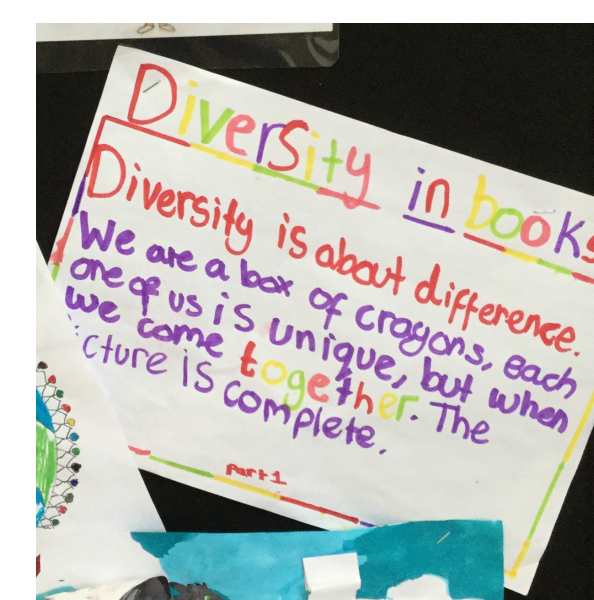 Diversity in books
Diversity is about difference.
We are a box of crayons, each
one of us is unique, but when
we come together. The
cture is complete.
part 1